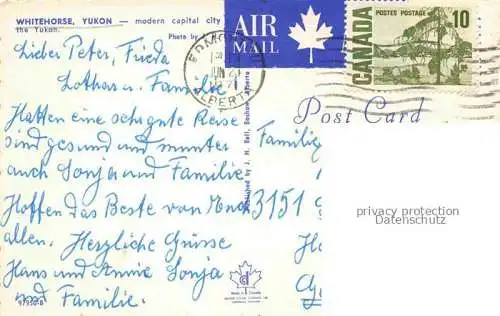 WHITEHORSE, YUKON — modern capital city
the Yukon.
Photo by
AIR
MAIL
CANADA
POSTES POSTAGE
10
EDMONTON
JUN 21
ALBERTA
Post Card
Lieber Peter, Frieda
Lothar u. Familie
Hatten eine sehr gute Reise
sind gesund und munter
auch Sonja und Familie
Hoffen das Beste von Euch
allen. Herzliche Grüsse
Hans und Annie Sonja
und Familie.
Published by J. H. Bell, Bashaw, Alberta
Familie
3151
privacy protection
Datenschutz
Made in Canada